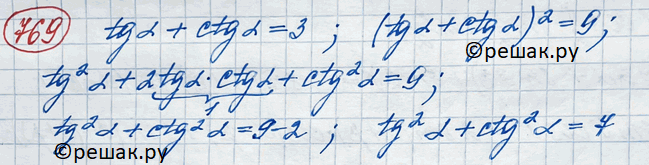 769 tgα + ctgα = 3 ; (tgα + ctgα)² = 9 ;
©решак.ру
tg²α + 2tgα · ctgα + ctg²α = 9 ;
1
tg²α + ctg²α = 9 - 2 ; tg²α + ctg²α = 7
©решак.ру